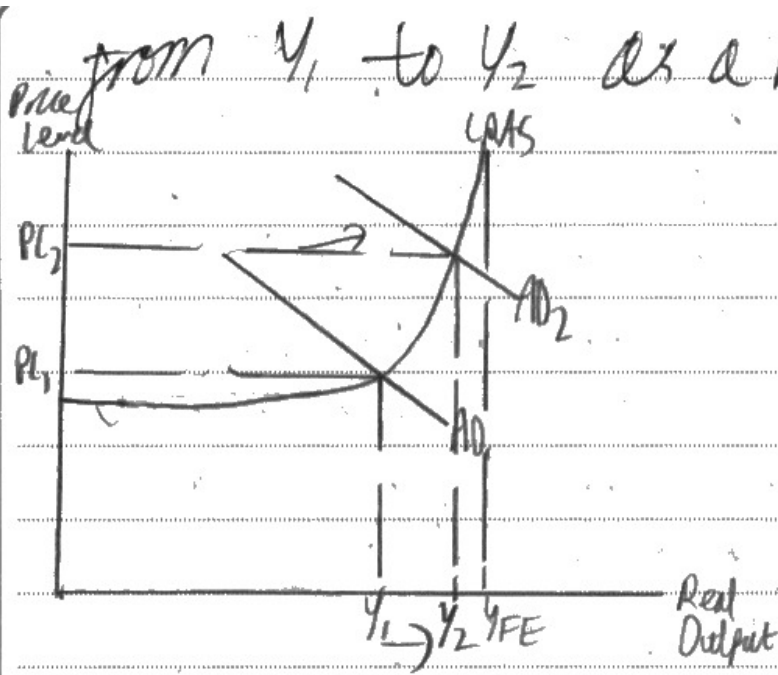 from Y1 to Y2 as a
Price
Level
LRAS
PL2
AD2
PL1
AD1
Y1 → Y2 YFE
Real
Output